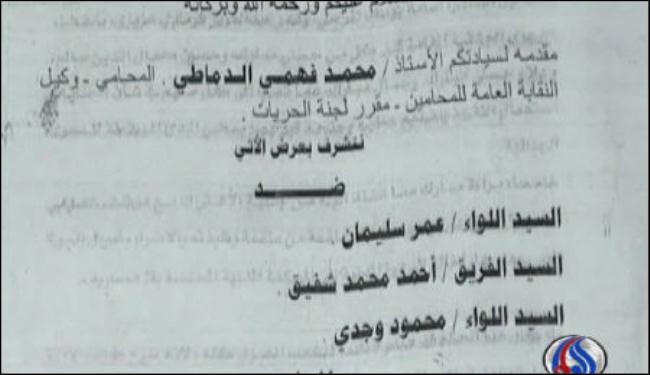 عليكم ورحمة الله وبركاته
مقدمه لسيادتكم الأستاذ / محمد فهمي الدماطي . المحامي - وكيل
النقابة العامة للمحامين - مقرر لجنة الحريات .
نتشرف بعرض الآتي
ضـــــد
السيد اللواء / عمر سليمان
السيد الفريق / أحمد محمد شفيق .
السيد اللواء / محمود وجدي